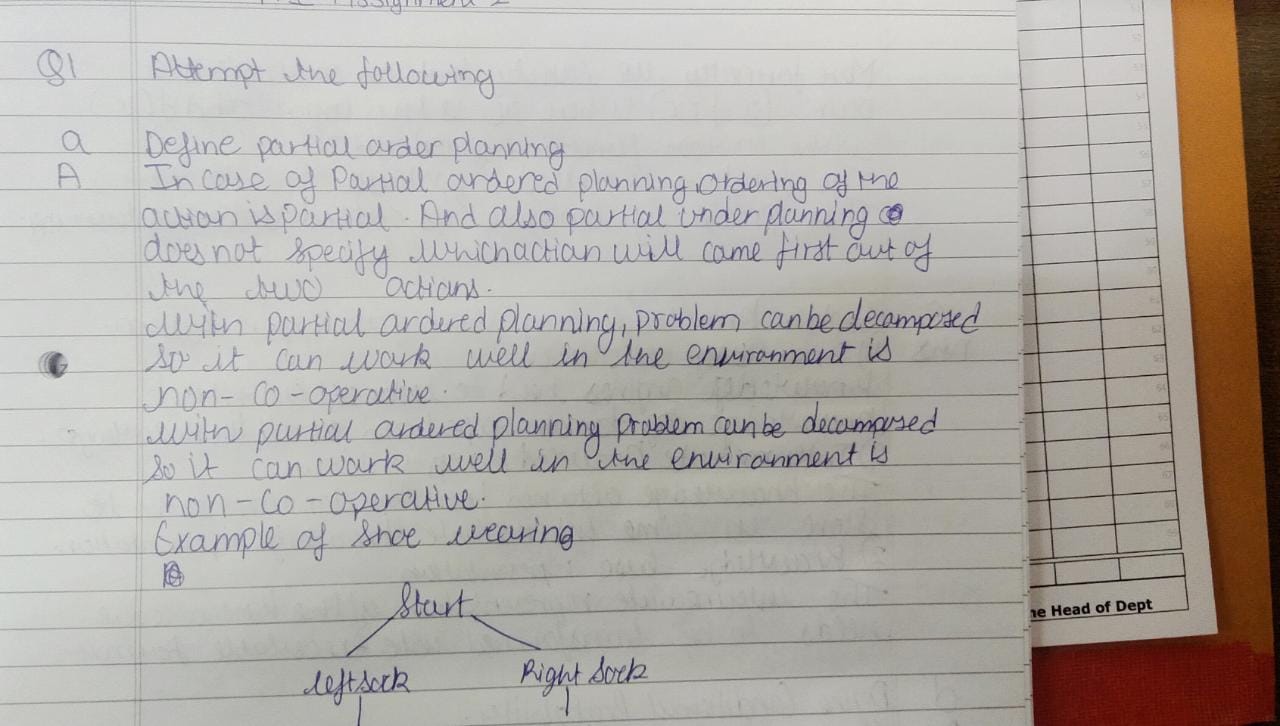 Assignment 2
Q1 Attempt the following
a Define partial order planning
A In case of Partial ordered planning, ordering of the
action is partial. And also partial under planning
does not specify which action will come first out of
the two actions.
With partial ordered planning, problem can be decomposed
so it can work well in the environment is
non-co-operative.
with partial ordered planning problem can be decomposed
so it can work well in the environment is
non-co-operative.
Example of shoe wearing
Start
left sock Right Sock
he Head of Dept